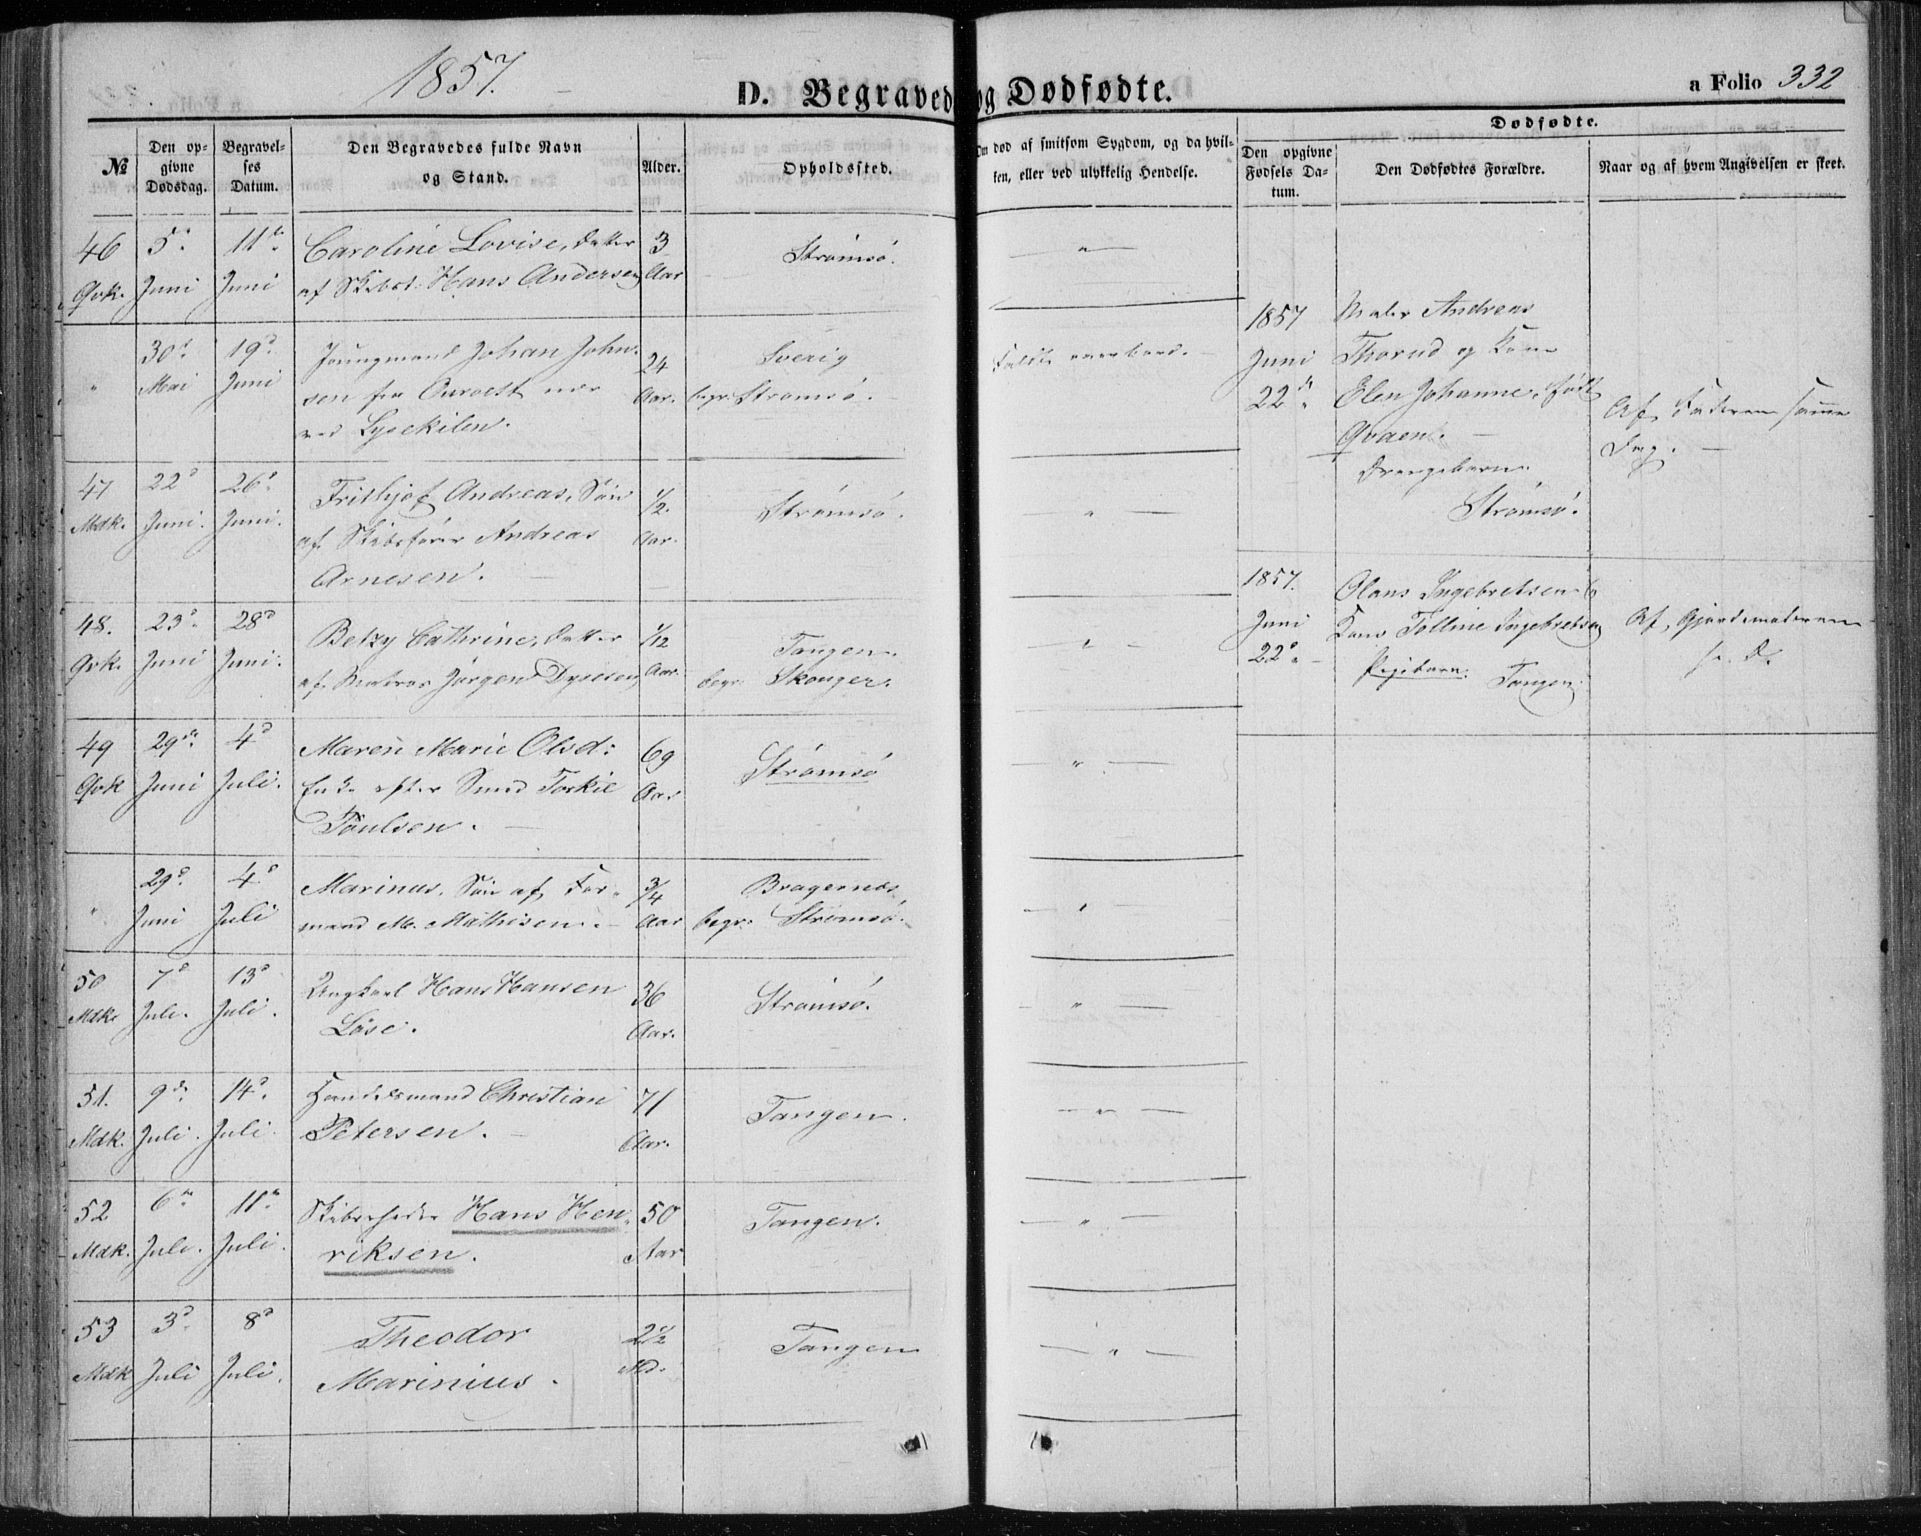 1857.
D. Begravede og Dødfødte.
a Folio 332
№
Den opgivne Dødsdag.
Begravelses Datum.
Den Begravedes fulde Navn og Stand.
Alder.
Opholdssted.
Om død af smitsom Sygdom, og da hvilken, eller ved ulykkelig Hendelse.
Dødfødte.
Den opgivne Fødsels Datum.
Den Dødfødtes Forældre.
Naar og af hvem Angivelsen er skeet.
46 5te 11te Caroline Lovise, Datter 3 Strømsø. "
Qvk. Juni Juni af Skibst. Hans Andersen Aar
" 30te 19de Joungmand Johan John- 24 Sverig Faldt overbord.
Mai Juni sen fra Aar. begr. Strømsø.
ved Lysekilen.
47 22de 26de Frithjof Andreas, Søn 1/2 Strømsø. "
Mdk. Juni. Juni. af Skibsfører Andreas Aar.
Arnesen.
48. 23de 28de Betzy Cathrine, Datter 1/12 Tangen. "
Qvk. Juni Juni. af Matros Jørgen Dyresen Aar. begr. Skouger.
49 29de 4de Maren Marie Olsd: 69 Strømsø "
Qvk Juni Juli. Enke efter Smed Torkil Aar
Poulsen.
" 29de 4de Marinus, Søn af For- 3/4 Bragernes "
Juni Juli mand M. Mathisen. Aar begr. Strømsø.
50 7de 13de Ungkarl Hans Hansen 36 Strømsø. "
Mdk. Juli. Juli. Løse. Aar.
51. 9de 14de Handelsmand Christian 71 Tangen. "
Mdk. Juli. Juli. Petersen. Aar.
52 6te 11te Skibsrheder Hans Hen- 50 Tangen. "
Mdk. Juli. Juli. riksen. Aar
53 3de 8de Theodor 2 1/2 Tangen "
Mdk Juli Juli. Marinius. Md.
1857 Maler Andreas
Juni Thorud og Kone
22de Elen Johanne, født
Qvaen. Af Faderen samme
Drengebarn. Dag.
Strømsø.
1857. Olaus Ingebretsen &
Juni Kone Tolline Ingebretsen Af Gjordemoderen
22de Pigebarn. Tangen. s. D.